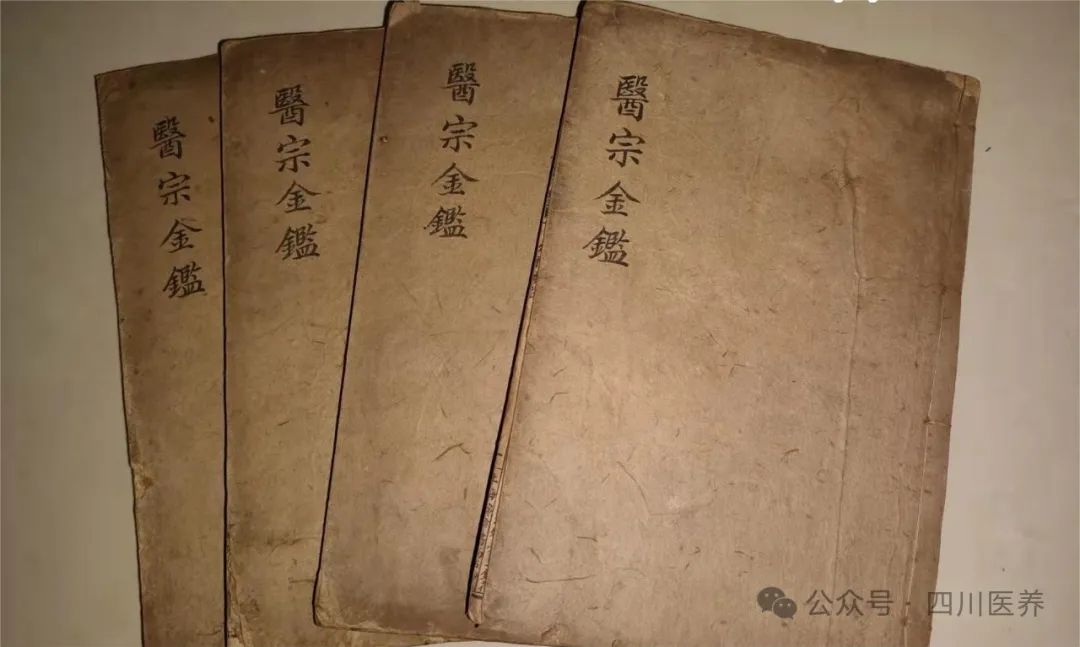 醫宗金鑑
醫宗金鑑
醫宗金鑑
醫宗金鑑
公众号·四川医养